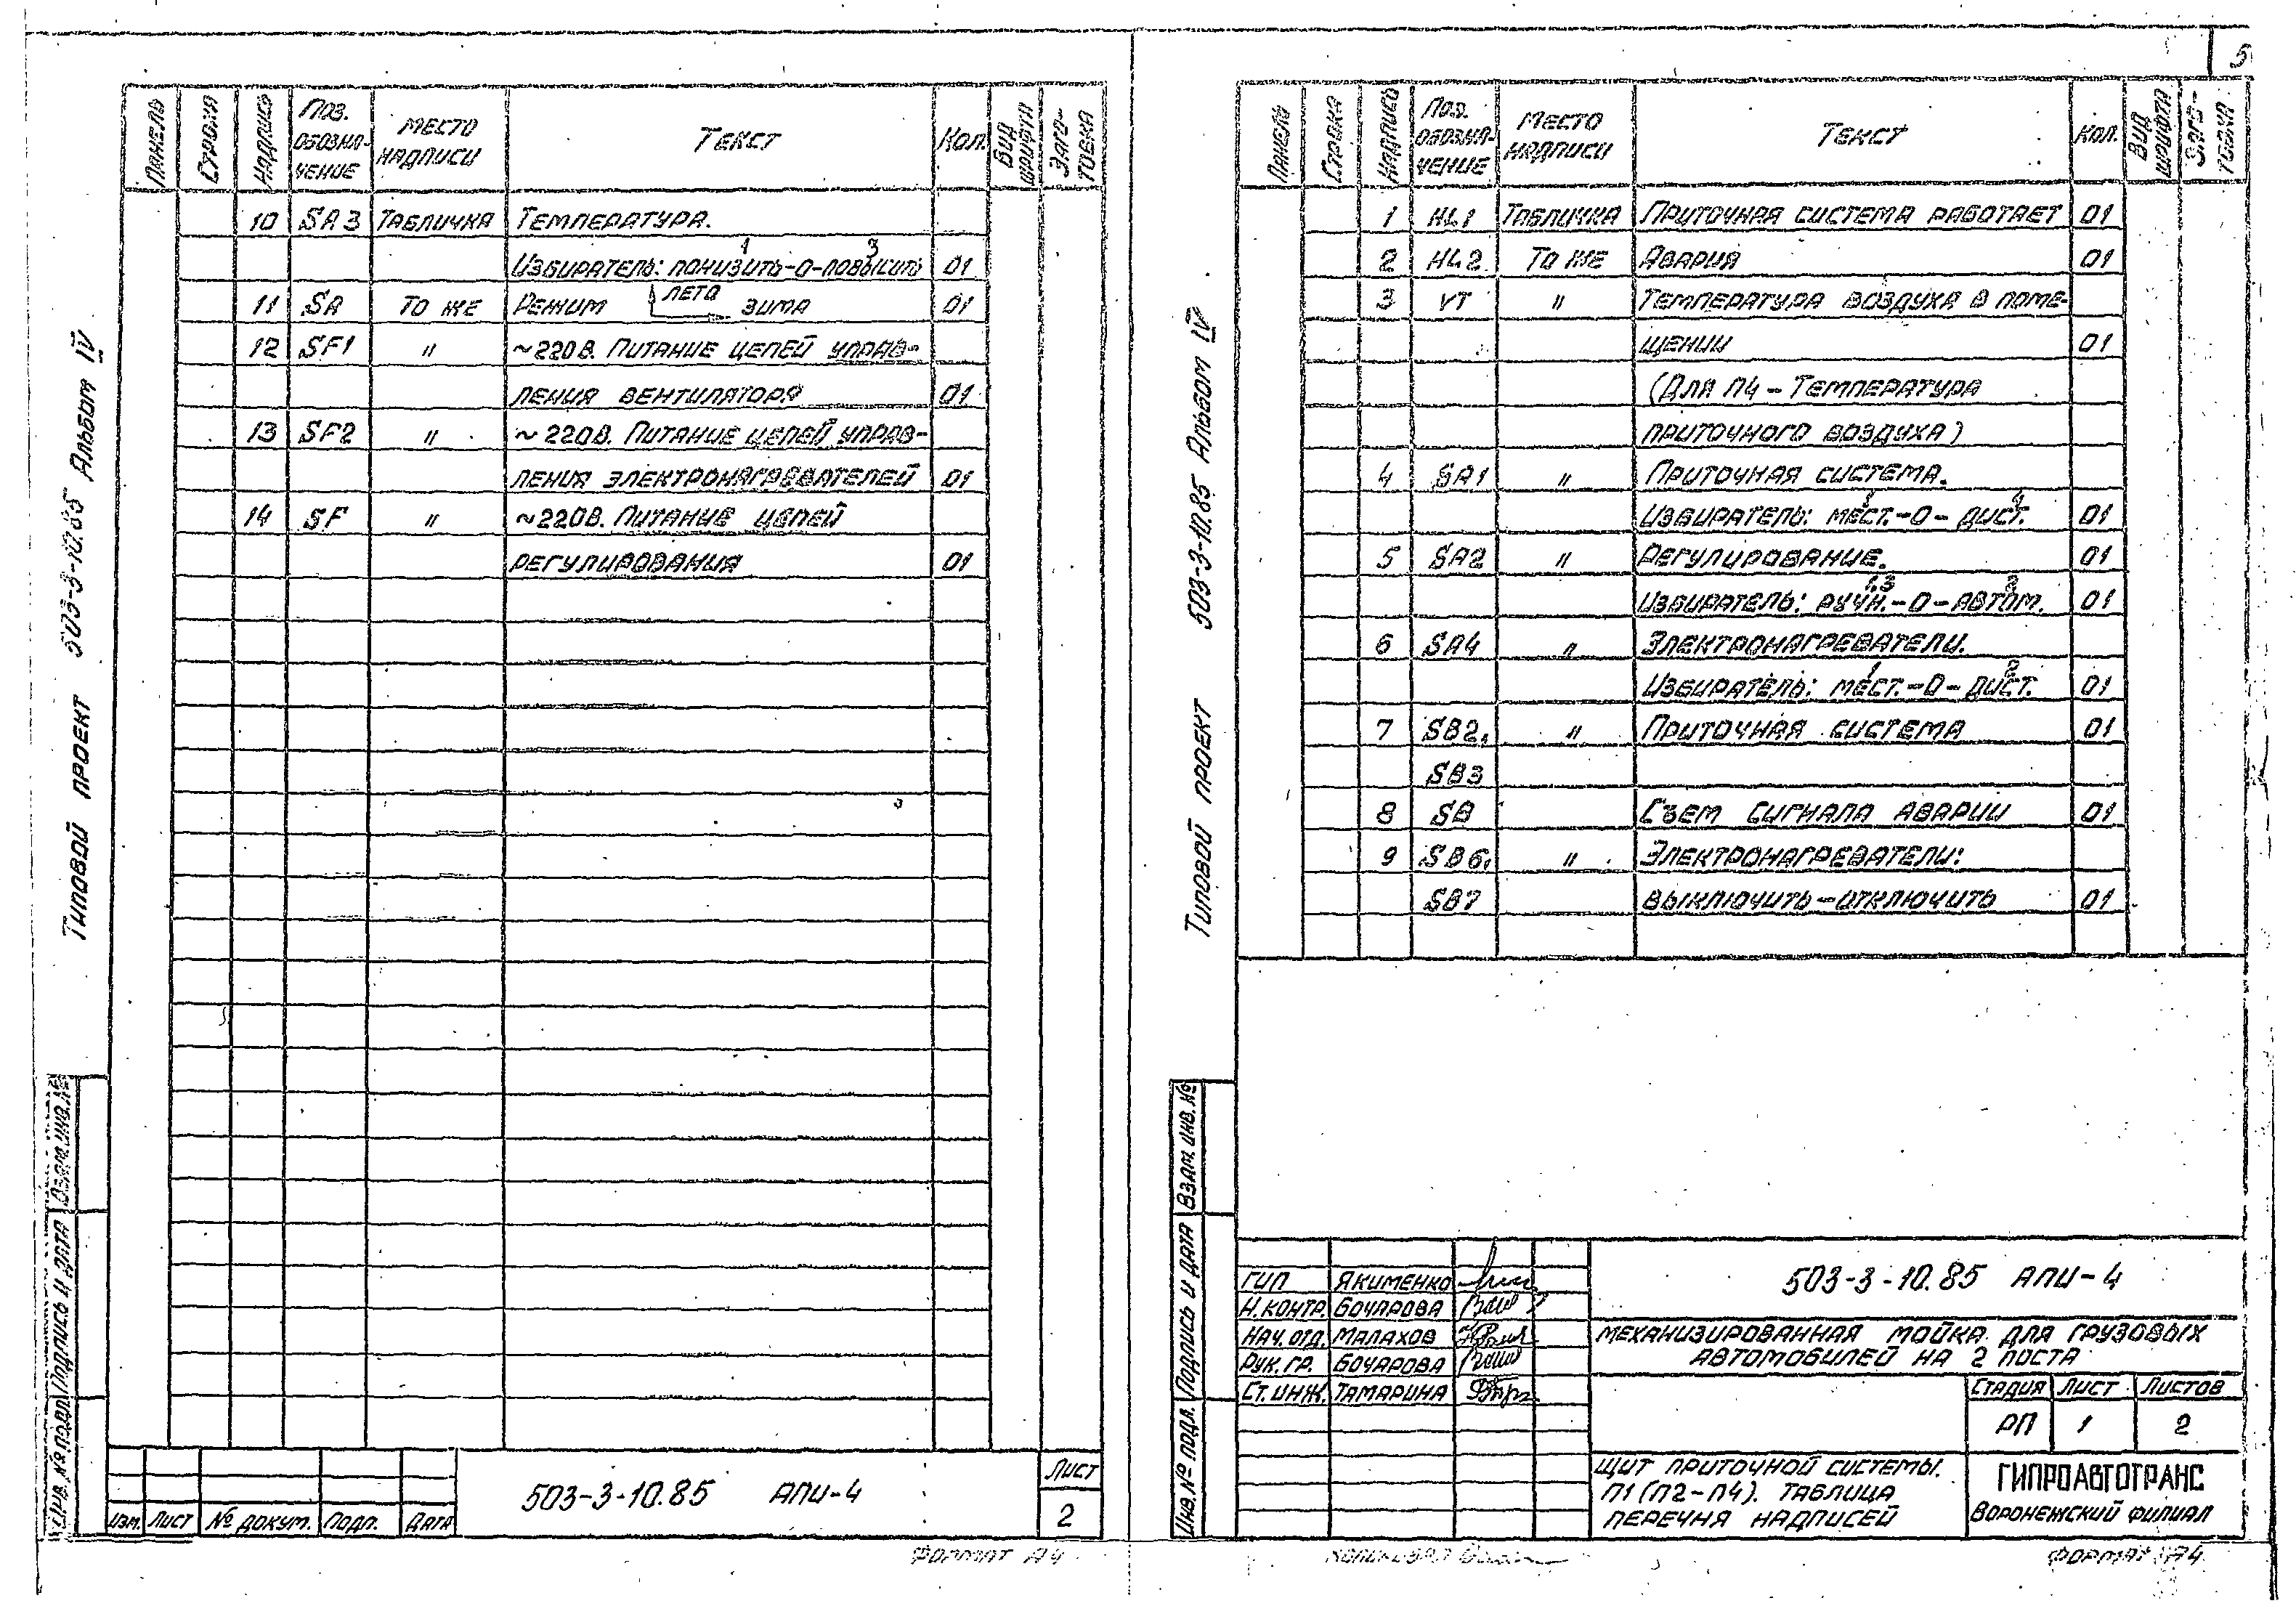 5
Типовой проект 503-3-10.85 Альбом IV
Панель Строка Надпись Поз. обозна- чение Место надписи Текст Кол. Вид шрифта Заго- товка
10 SA3 Табличка Температура.
1 3
Избиратель: понизить-0-повысить 01
11 SA То же Режим лето зима 01
12 SF1 " ~220В. Питание цепей управ-
ления вентилятора 01
13 SF2 " ~220В. Питание цепей управ-
ления электронагревателей 01
14 SF " ~220В. Питание цепей
регулирования 01
Взам.инв.№
Подпись и дата
Инв.№ подл.
Изм. Лист № докум. Подп. Дата
503-3-10.85 АПИ-4
Лист
2
Формат А4
Типовой проект 503-3-10.85 Альбом IV
Панель Строка Надпись Поз. обозна- чение Место надписи Текст Кол. Вид шрифта Заго- товка
1 HL1 Табличка Приточная система работает 01
2 HL2 То же Авария 01
3 YT " Температура воздуха в поме-
щении 01
(Для П4 - Температура
приточного воздуха)
4 SA1 " Приточная система.
Избиратель: мест.-0-дист. 01
5 SA2 " Регулирование. 01
1,3 2
Избиратель: ручн.-0-автом. 01
6 SA4 " Электронагреватели.
1 2
Избиратель: мест.-0-дист. 01
7 SB2, " Приточная система 01
SB3
8 SB Съем сигнала аварии 01
9 SB6, " Электронагреватели:
SB7 выключить-отключить 01
Взам.инв.№
Подпись и дата
Инв.№ подл.
ГИП Якименко
Н.контр. Бочарова
Нач.отд. Малахов
Рук.гр. Бочарова
Ст.инж. Тамарина
503-3-10.85 АПИ-4
Механизированная мойка для грузовых
автомобилей на 2 поста
Стадия Лист Листов
РП 1 2
Щит приточной системы.
П1(П2-П4). Таблица
перечня надписей
ГИПРОАВТОТРАНС
Воронежский филиал
Копировал
Формат А4